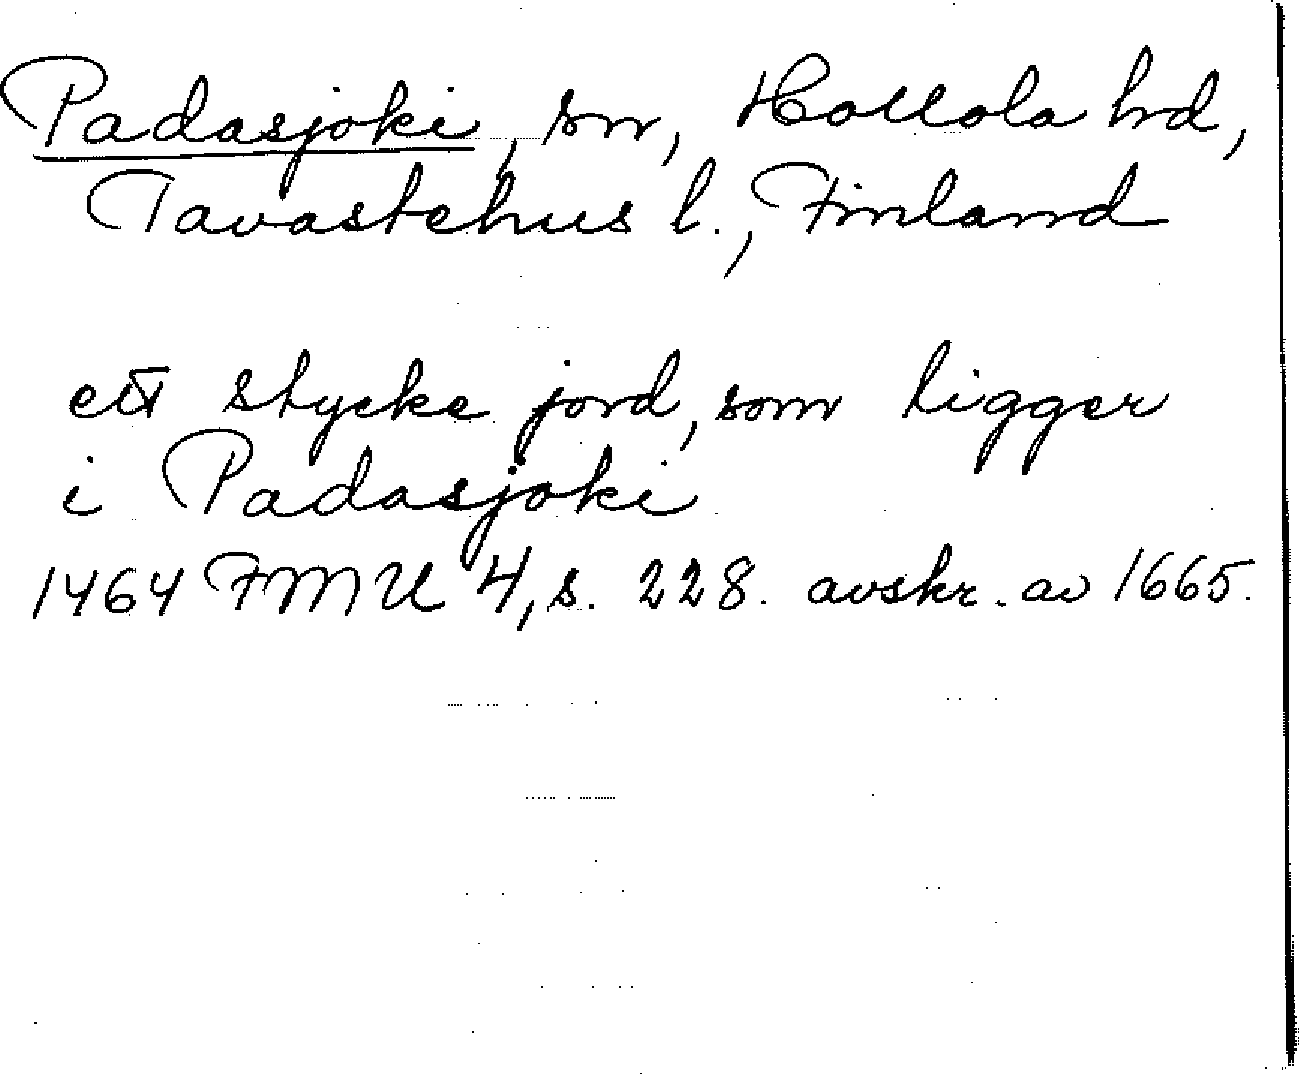 Padasjoki, sn, Hollola hd,
Tavastehus l., Finland
ett stycke jord, som ligger
i Padasjoki
1464 FMU 4, s. 228. avskr. av 1665.